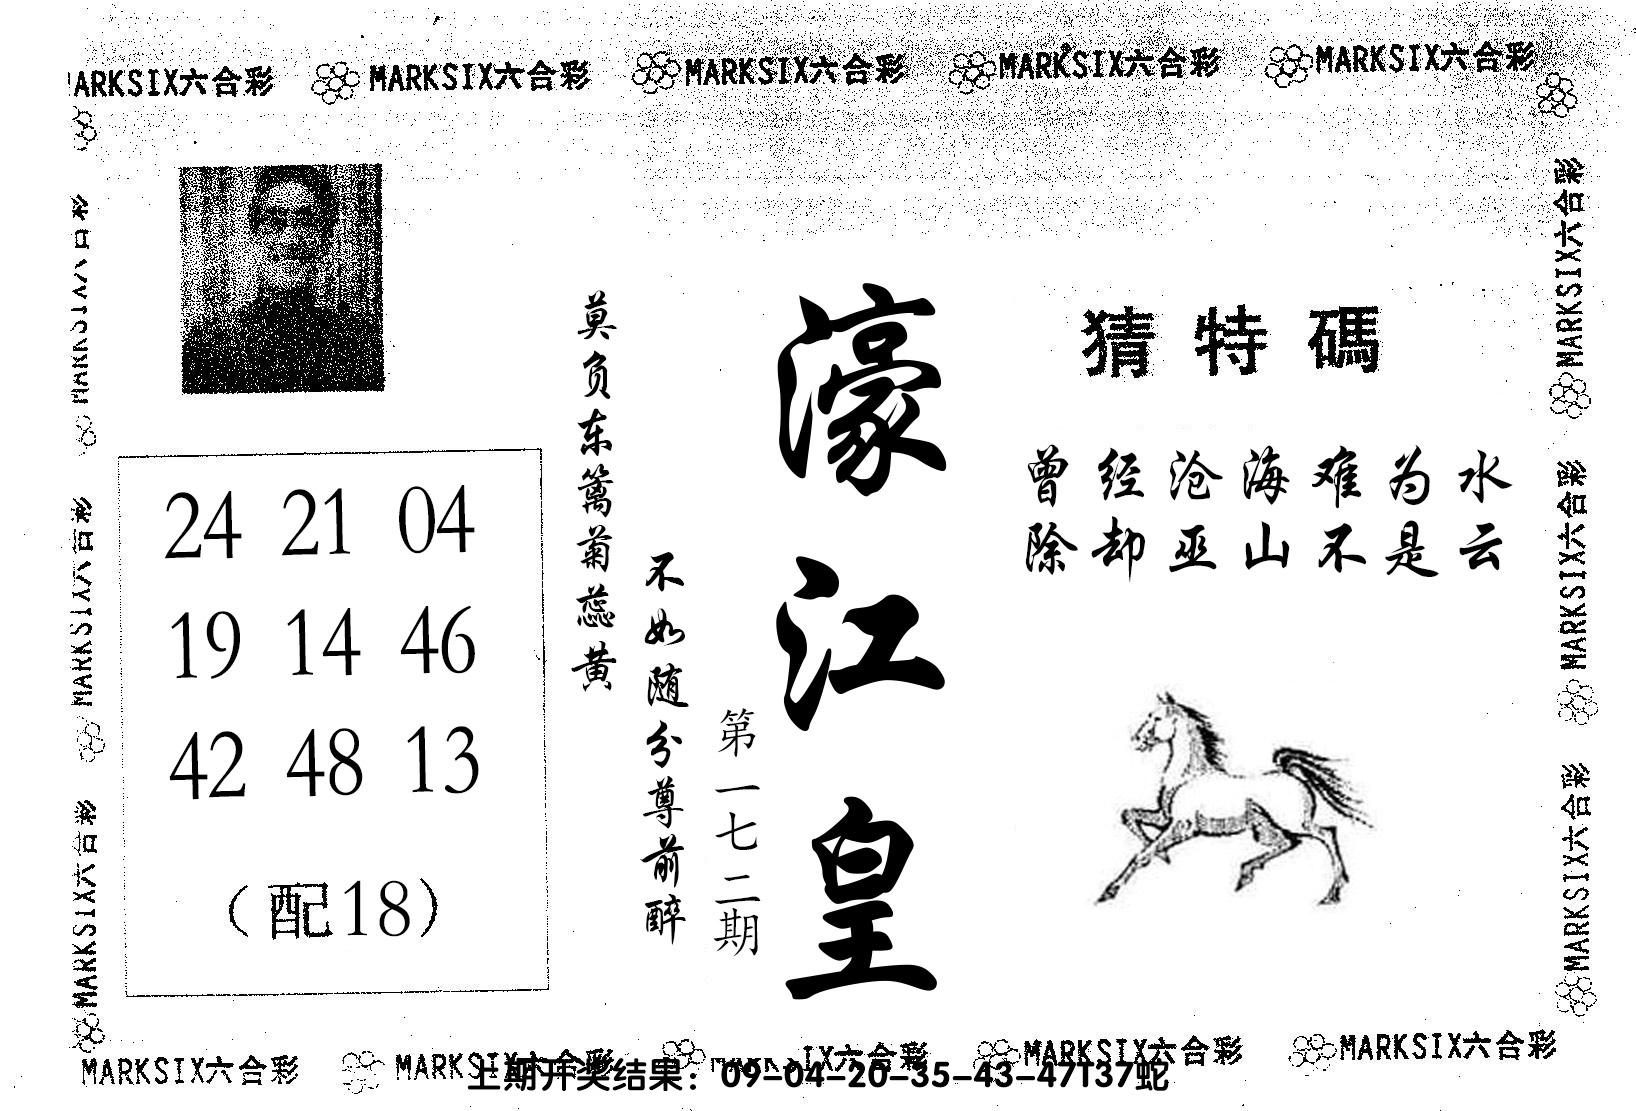 MARKSIX六合彩 MARKSIX六合彩 MARKSIX六合彩 MARKSIX六合彩 MARKSIX六合彩
MARKSIX六合彩
MARKSIX六合彩
MARKSIX六合彩
24 21 04
19 14 46
42 48 13
（配18）
莫负东篱菊蕊黄
不如随分尊前醉
第一七二期
濠江皇
猜特碼
曾经沧海难为水
除却巫山不是云
MARKSIX六合彩
MARKSIX六合彩
MARKSIX六合彩
MARKSIX六合彩 MARKSIX六合彩 IX六合彩 MARKSIX六合彩 MARKSIX六合彩
上期开奖结果：09-04-20-35-43-47T37蛇